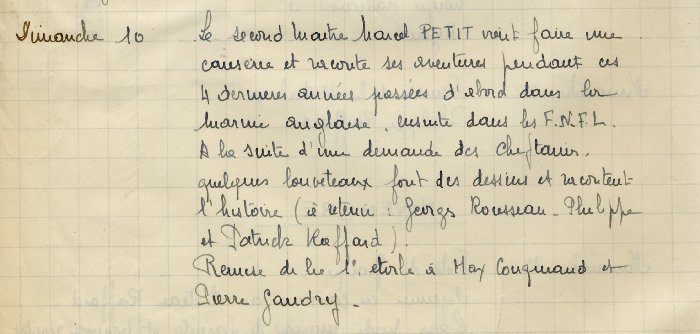 Dimanche 10 Le second maître Marcel PETIT vient faire une
causerie et raconte ses aventures pendant ces
4 dernières années passées d'abord dans la
marine anglaise, ensuite dans les F.N.F.L.
A la suite d'une demande des cheftaines,
quelques louveteaux font des dessins et racontent
l'histoire (à retenir : Georges Rousseau - Philippe
et Patrick Raffard).
Remise de la 1ère étoile à Max Couqueraud et
Pierre Gaudry -